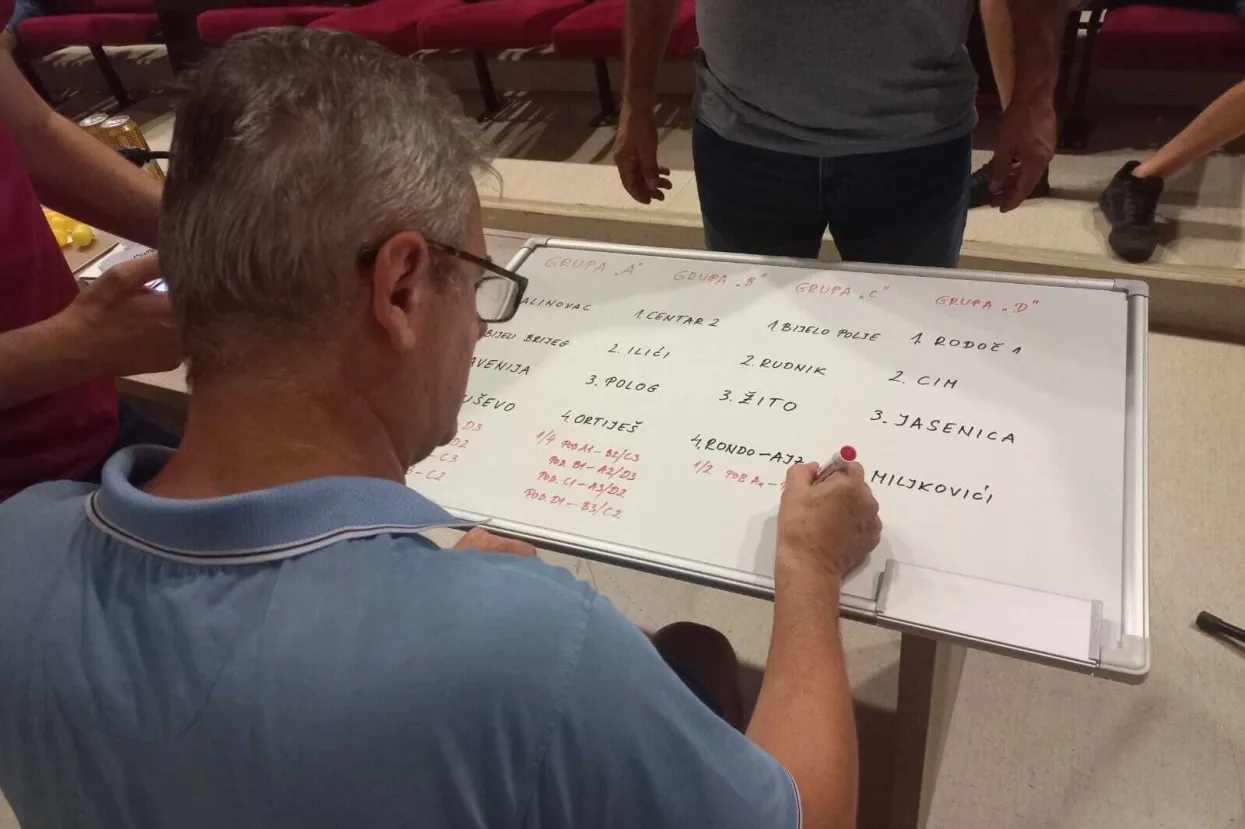 GRUPA „A" GRUPA „B" GRUPA „C" GRUPA „D"
ALINOVAC 1. CENTAR 2 1. BIJELO POLJE 1. RODOČ 1
BIJELI BRIJEG 2. ILIĆI 2. RUDNIK 2. CIM
AVENIJA 3. POLOG 3. ŽITO 3. JASENICA
UŠEVO 4. ORTIJEŠ 4. RONDO-AJZ MILJKOVIĆI
D3 1/4 POB A1-B2/C3 1/2 POB
D2 POB. B1-A2/D3
C3 POB. C1-A3/D2
C2 POB. D1-B3/C2